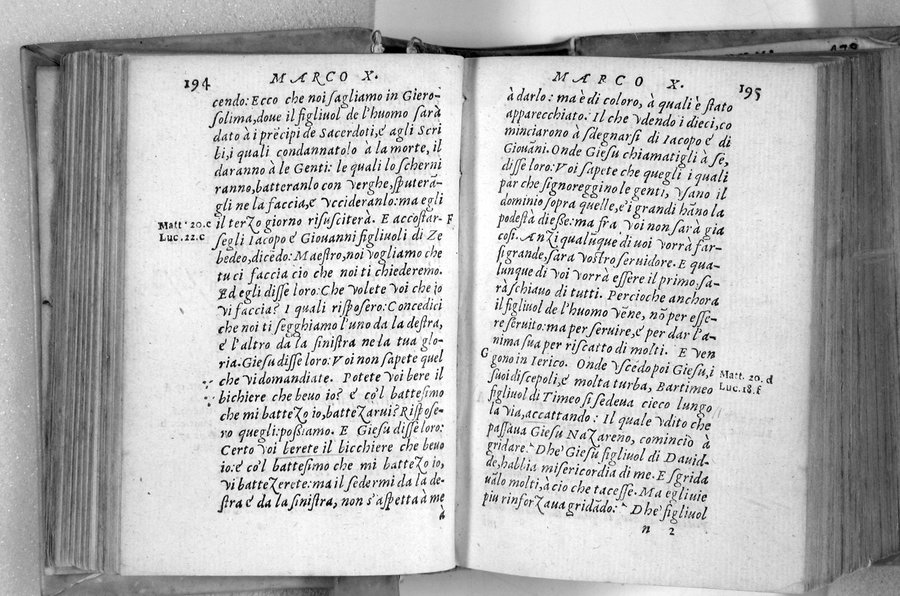 194
MARCO X.
cendo: Ecco che noi sagliamo in Giero-
solima, doue il figliuol de l'huomo sarà
dato à i prẽcipi de Sacerdoti, e agli Scri
bi, i quali condannatolo à la morte, il
daranno à le Genti: le quali lo scherni
ranno, batteranlo con verghe, sputerã-
gli ne la faccia, e vccideranlo: ma egli
il terzo giorno risusciterà. E accostar- F
Matt. 20. c
Luc. 22. c
segli Iacopo e Giovanni figliuoli di Ze
bedeo, dicẽdo: Maestro, noi vogliamo che
tu ci faccia cio che noi ti chiederemo.
Ed egli disse loro: Che volete voi che io
vi faccia? I quali risposero: Concedici
che noi ti segghiamo l'uno da la destra,
e l'altro da la sinistra ne la tua glo-
ria. Giesu disse loro: Voi non sapete quel
che vi domandiate. Potete voi bere il
bichiere che beuo io? e co'l battesimo
che mi battezo io, battezarui? Rispose-
ro quegli: possiamo. E Giesu disse loro:
Certo voi berete il bicchiere che beuo
io: e co'l battesimo che mi battezo io,
vi battezerete: ma il sedermi da la de-
stra e da la sinistra, non s'aspetta à me
à
MARCO X.
195
à darlo: ma è di coloro, à quali è stato
apparecchiato. Il che vdendo i dieci, co
minciarono à sdegnarsi di Iacopo e di
Giouãni. Onde Giesu chiamatigli à se,
disse loro: Voi sapete che quegli i quali
par che signoreggino le genti, vsano il
dominio sopra quelle, e i grandi hãno la
podestà di esse: ma fra voi non sarà gia
cosi. Anzi qualuque di uoi vorrà far-
si grande, sara vostro seruidore. E qua-
lunque di voi vorrà essere il primo, sa-
rà schiauo di tutti. Percioche anchora
il figliuol de l'huomo vẽne, nõ per esse-
re seruito: ma per seruire, e per dar l'a-
nima sua per riscatto di molti. E ven
G gono in Ierico. Onde vscẽdo poi Giesu, i
Matt. 20. d
Luc. 18. f
suoi discepoli, e molta turba, Bartimeo
figliuol di Timeo si sedeua cieco lungo
la via, accattando: Il quale vdito che
passaua Giesu Nazareno, comincio à
gridare: Dhe Giesu figliuol di Dauid-
de, habbia misericordia di me. E sgrida
uãlo molti, à cio che tacesse. Ma egli vie
piu rinforzaua gridãdo: Dhe figliuol
n 2